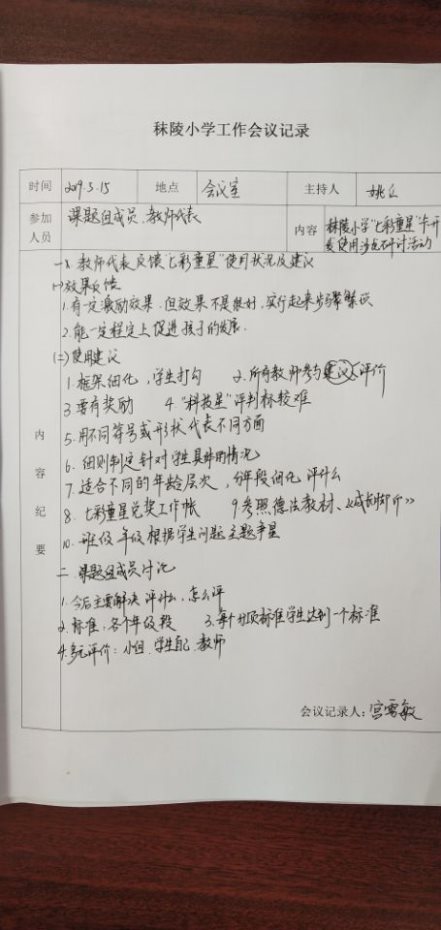 秣陵小学工作会议记录
时间 2019.5.15 地点 会议室 主持人 姚
参加人员 课题组成员、教师代表 内容 秣陵小学"七彩童星"卡开发使用 研讨活动
内容纪要
一、教师代表反馈"七彩童星"使用状况及建议
(一)效果反馈
1.有一定激励效果,但效果不是很好,实行起来步骤繁琐
2.能一定程度上促进孩子的发展.
(二)使用建议
1.框架细化,学生打勾 2.所有教师参与建议、评价
3.要有奖励 4."科技星"评判标较难
5.用不同符号或形状代表不同方面
6.细则制定针对学生具体的情况
7.适合不同的年龄层次,分年段细化评什么
8.七彩童星兑奖工作帐 9.参照德法教材、《
10.班级年级根据学生问题主题争星
二、课题组成员讨论
1.今后主要解决评什么,怎么评
2.标准,各个年级段 3.每个分项标准学生达到一个标准
4.多元评价:小组.学生自己.教师
会议记录人:宫雪敏